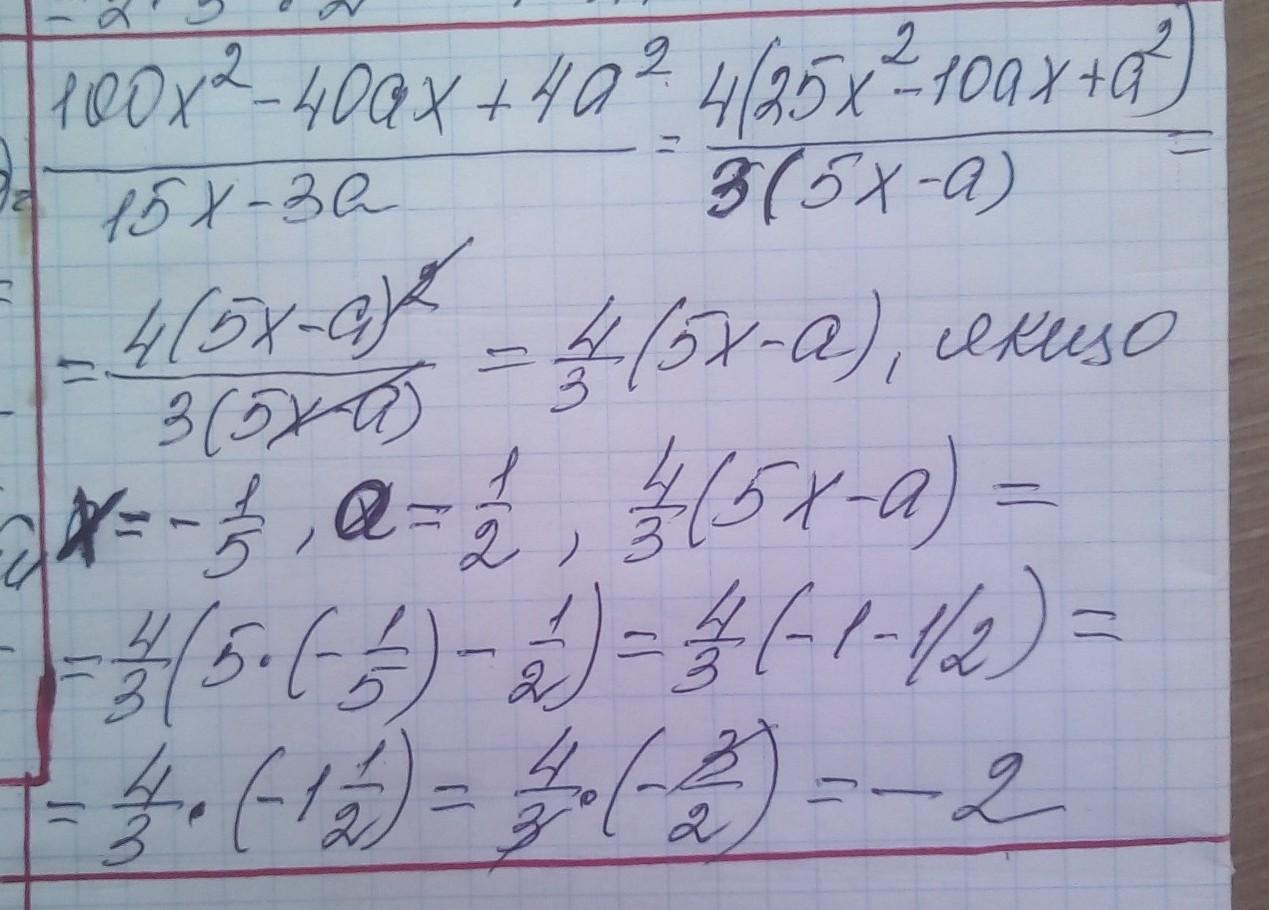 100x² - 40ax + 4a² / 15x - 3a = 4(25x² - 10ax + a²) / 3(5x - a) =
= 4(5x - a)² / 3(5x - a) = 4/3 (5x - a), якщо
x = - 1/5, a = 1/2, 4/3 (5x - a) =
= 4/3 (5 · (- 1/5) - 1/2) = 4/3 (-1 - 1/2) =
= 4/3 · (-1 1/2) = 4/3 · (- 3/2) = - 2